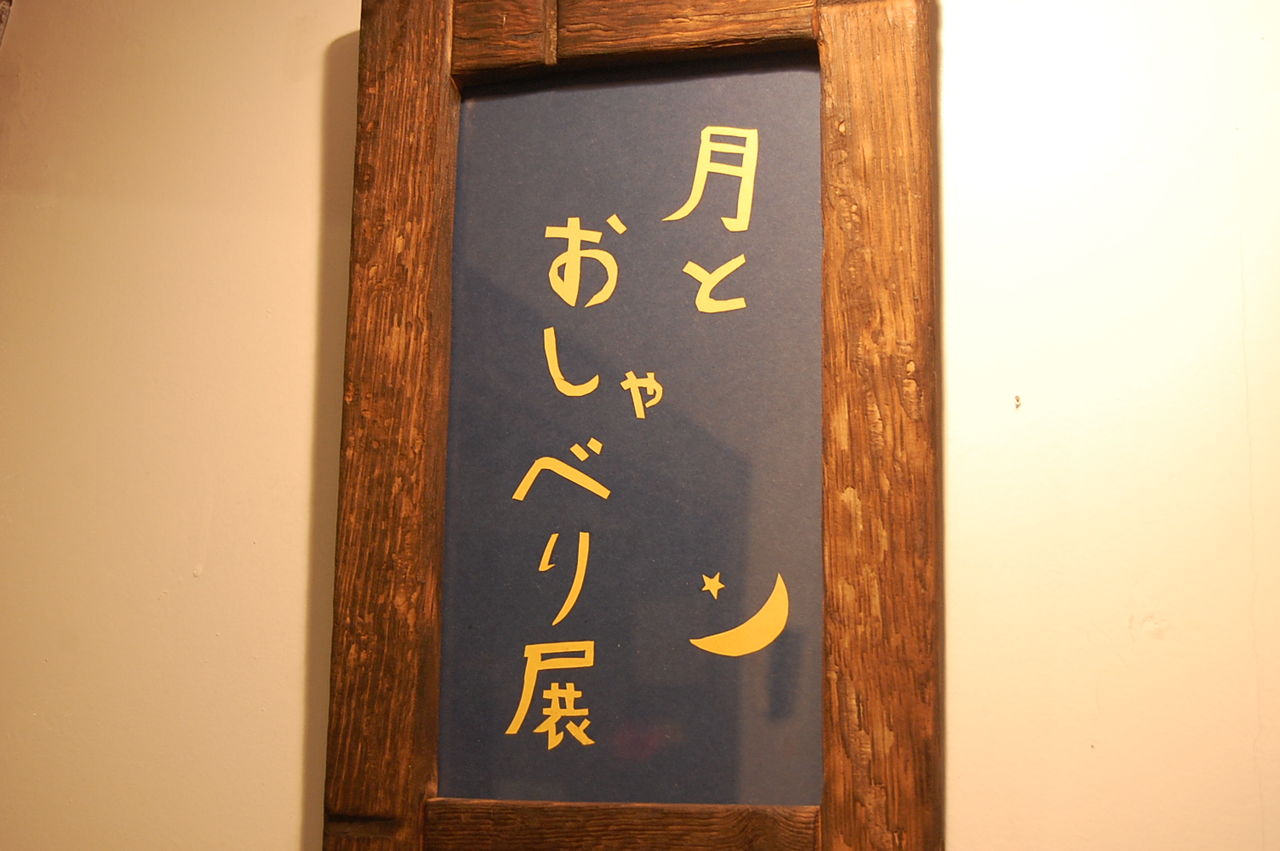 月と
おしゃべり展